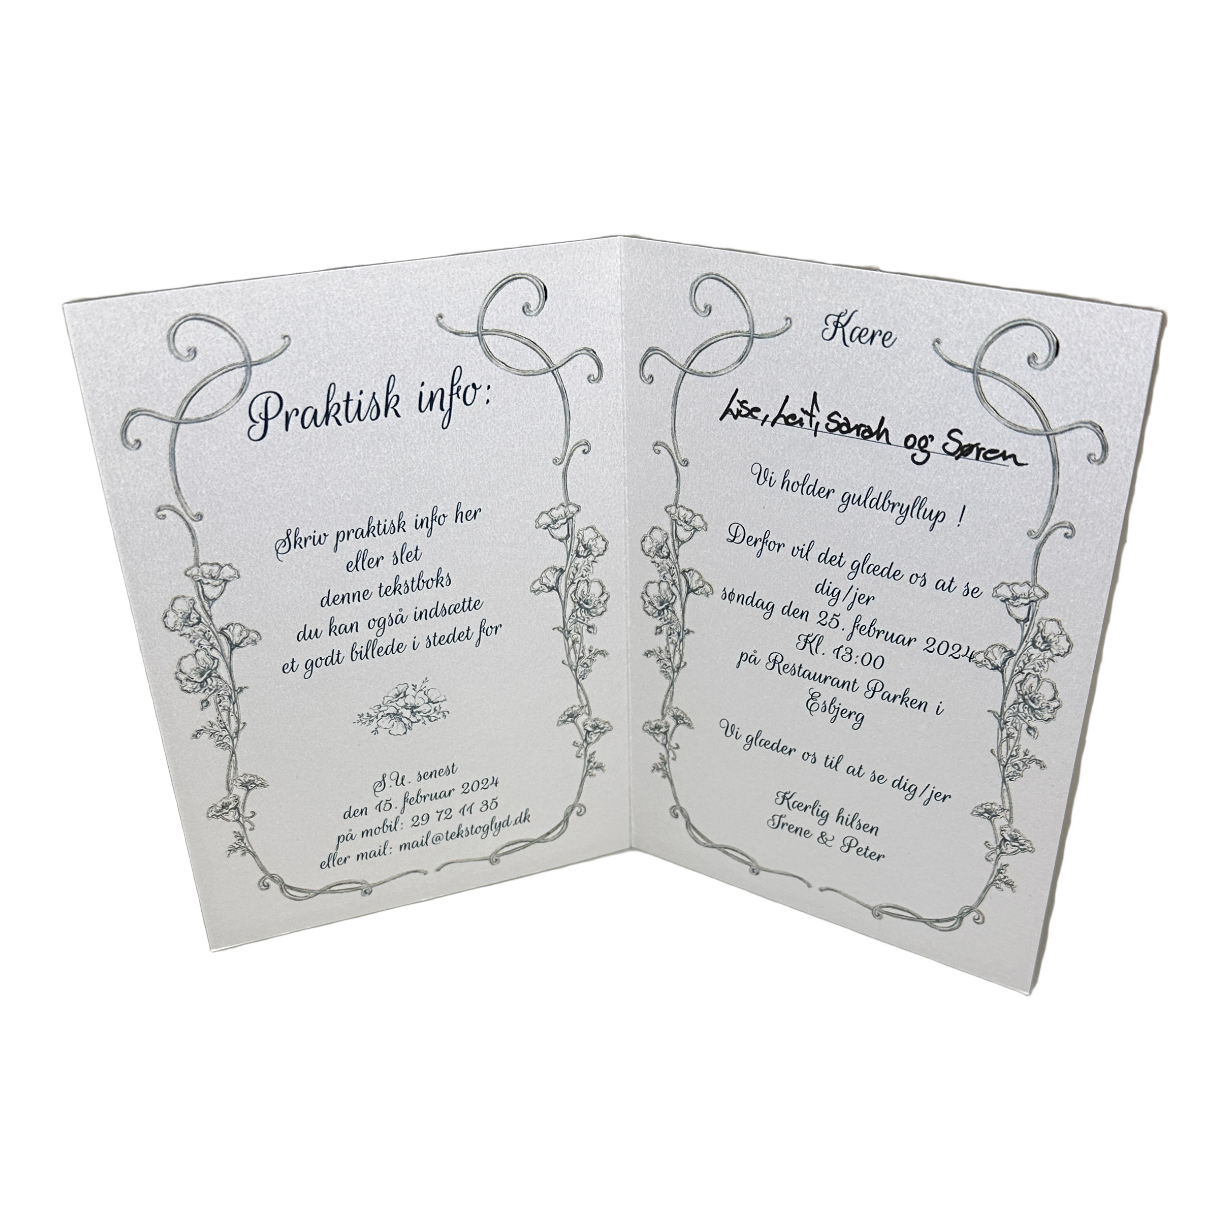 Praktisk info:
Skriv praktisk info her
eller slet
denne tekstboks
du kan også indsætte
et godt billede i stedet for
S.U. senest
den 15. februar 2024
på mobil: 29 72 11 35
eller mail: mail@tekstoglyd.dk
Kære
Lise, Leif, Sarah og Søren
Vi holder guldbryllup !
Derfor vil det glæde os at se
dig/jer
søndag den 25. februar 2024
Kl. 13:00
på Restaurant Parken i
Esbjerg
Vi glæder os til at se dig/jer
Kærlig hilsen
Irene & Peter